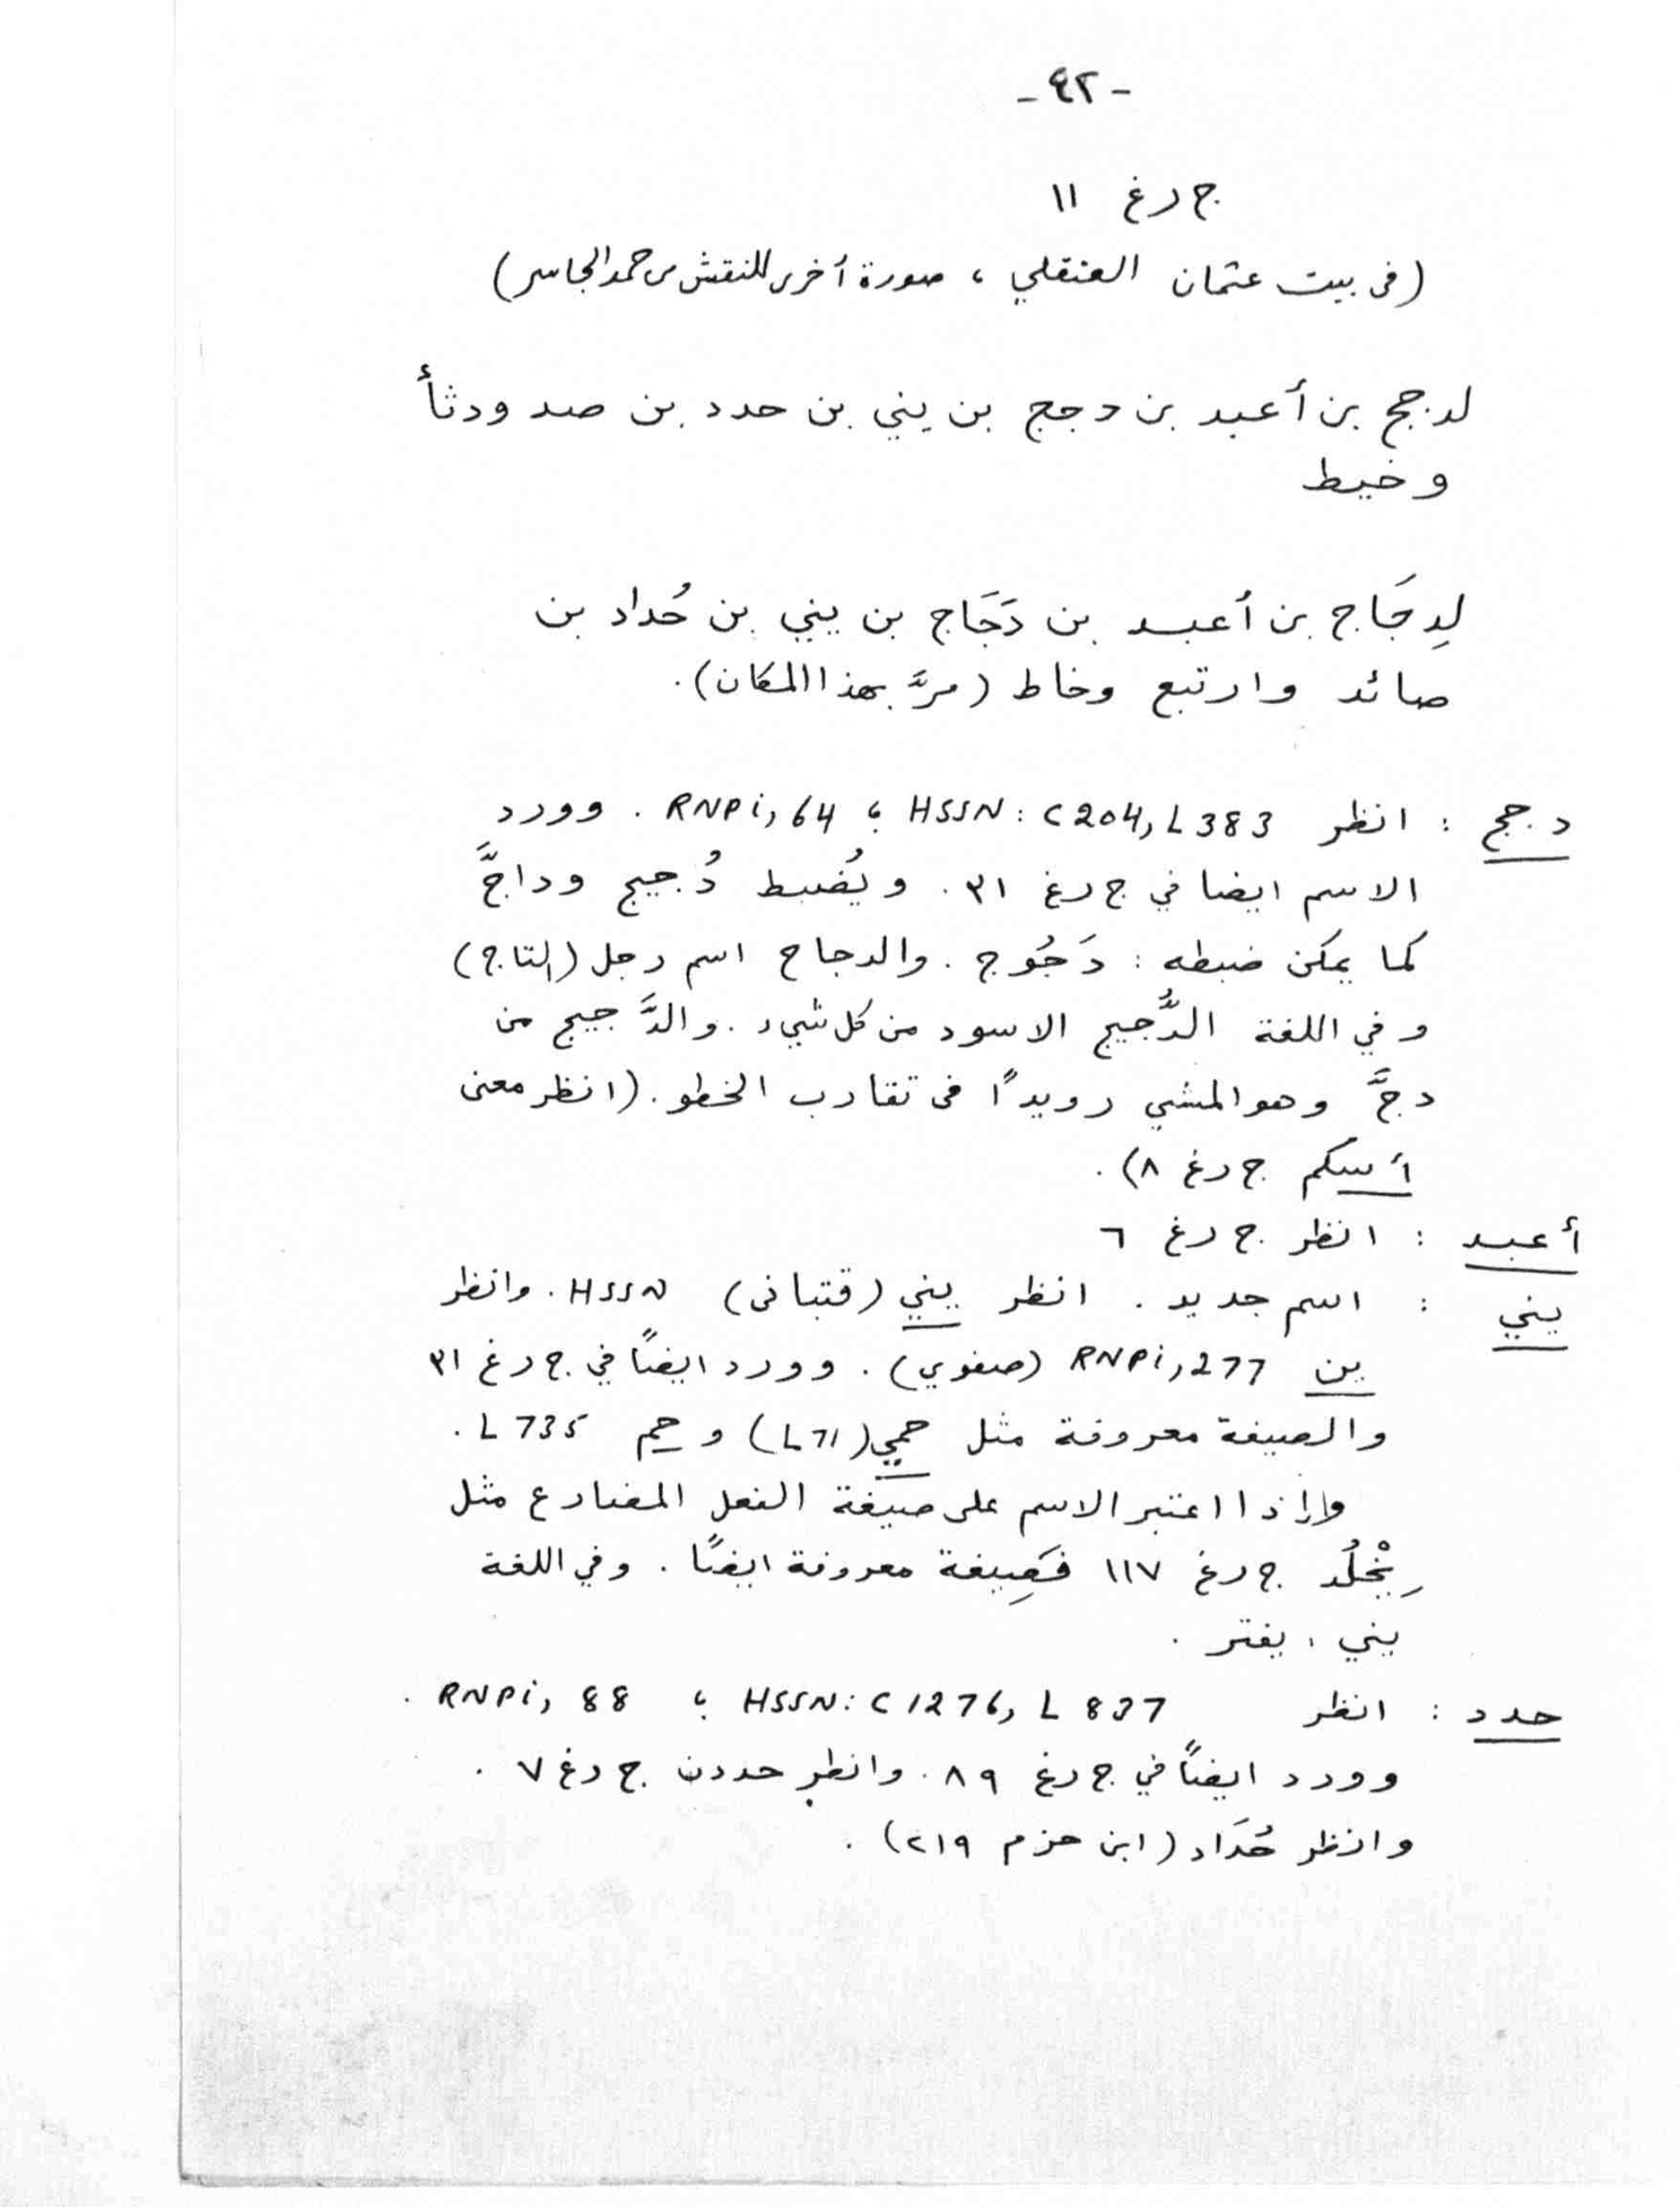 - ٤٢ -
ج رغ ١١
(في بيت عثمان العنقلي ، صورة أخرى للنقش من حمد الجاسر)
لدجج بن أعبد بن دجج بن يني بن حدد بن صد ودثأ
وخيط
لِدجَاج بن أعبد بن دَجَاج بن يني بن حُداد بن
صائد وارتبع وخاط (مرَّ بهذا المكان).
دجج : انظر HSSN: C204, L383 ؛ RNPi, 64 . وورد
الاسم ايضا في ج رغ ٣١ . ويُضبط دُجيج وداجَّ
كما يمكن ضبطه : دَجُوج . والدجاج اسم رجل (التاج)
وفي اللغة الدُّجيج الاسود من كل شيء . والدَّجيج من
دجَّ وهو المشي رويداً في تقارب الخطو . (انظر معنى
أسكم ج رغ ٨) .
أعبد : انظر ج رغ ٦
يني : اسم جديد . انظر يني (قتباني) HSSN . وانظر
ين RNPi, 277 (صفوي) . وورد ايضاً في ج رغ ٣١
والصيغة معروفة مثل حمي (L71) و حم L 735 .
وإذا اعتبر الاسم على صيغة الفعل المضارع مثل
يَخْلُد ج رغ ١١٧ فصيغة معروفة ايضاً . وفي اللغة
يني ، يفتر .
حدد : انظر HSSN: C1276, L 837 ؛ RNPi, 88 .
وورد ايضاً في ج رغ ٨٩ . وانظر حددن ج رغ ٧ .
وانظر حُدَاد (ابن حزم ٢١٩) .